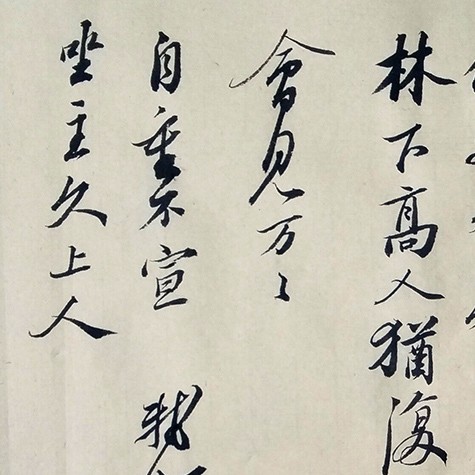 林下高人猶復
會見万〻
自重不宣 軾
坐主久上人